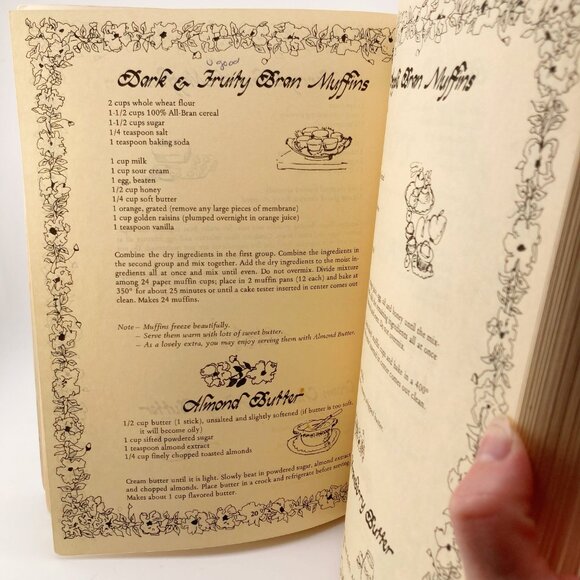 v good
Dark & Fruity Bran Muffins
2 cups whole wheat flour
1-1/2 cups 100% All-Bran cereal
1-1/2 cups sugar
1/4 teaspoon salt
1 teaspoon baking soda
1 cup milk
1 cup sour cream
1 egg, beaten
1/2 cup honey
1/4 cup soft butter
1 orange, grated (remove any large pieces of membrane)
1 cup golden raisins (plumped overnight in orange juice)
1 teaspoon vanilla
Combine the dry ingredients in the first group. Combine the ingredients in
the second group and mix together. Add the dry ingredients to the moist in-
gredients all at once and mix until even. Do not overmix. Divide mixture
among 24 paper muffin cups; place in 2 muffin pans (12 each) and bake at
350° for about 25 minutes or until a cake tester inserted in center comes out
clean. Makes 24 muffins.
Note – Muffins freeze beautifully.
– Serve them warm with lots of sweet butter.
– As a lovely extra, you may enjoy serving them with Almond Butter.
Almond Butter
1/2 cup butter (1 stick), unsalted and slightly softened (if butter is too soft,
it will become oily)
1 cup sifted powdered sugar
1 teaspoon almond extract
1/4 cup finely chopped toasted almonds
Cream butter until it is light. Slowly beat in powdered sugar, almond extract
and chopped almonds. Place butter in a crock and refrigerate before serving.
Makes about 1 cup flavored butter.
20
Bran Muffins
and honey until the mix-
ingredients all at once
cups and bake in a 400°
center comes out clean.
Butter